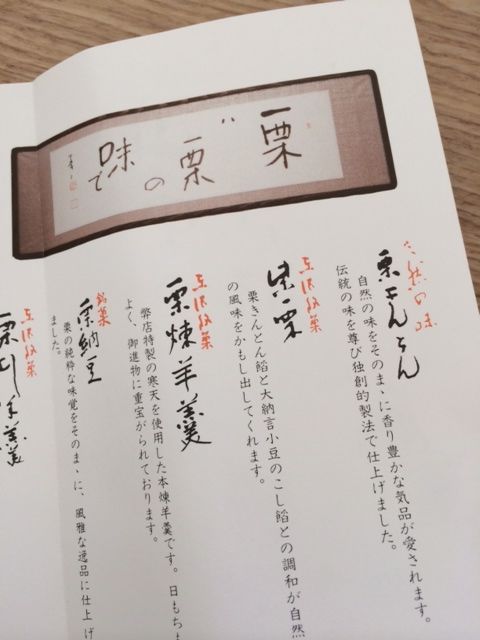 栗ハ栗の味で
の味
栗きんとん
自然の味をそのまゝに香り豊かな気品が愛されます。
伝統の味を尊び独創的製法で仕上げました。
栗
栗きんとん餡と大納言小豆のこし餡との調和が自然
の風味をかもし出してくれます。
栗煉羊羹
弊店特製の寒天を使用した本煉羊羹です。日もちも
よく、御進物に重宝がられております。
銘菓
栗納豆
栗の純粋な味覚をそのまゝに、風雅な逸品に仕上げ
ました。
栗むし羊羹